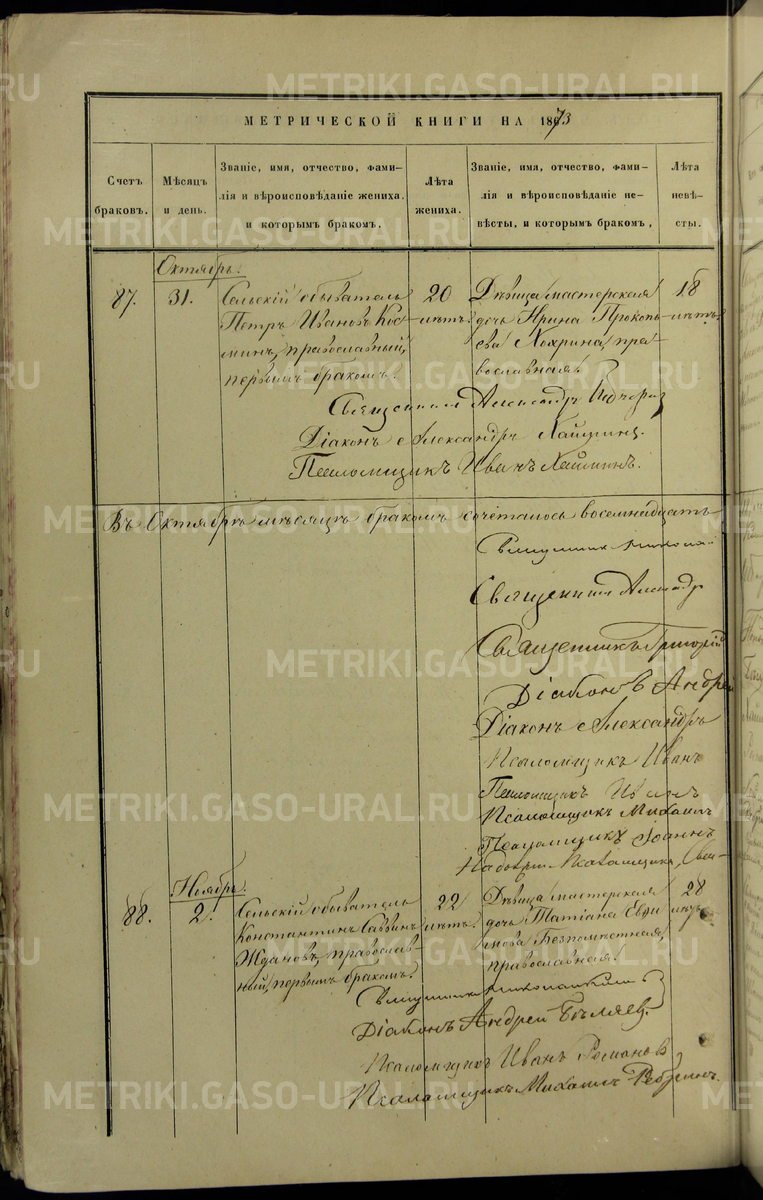 METRIKI.GASO-URAL.RU
МЕТРИЧЕСКОЙ КНИГИ НА 1873
Счетъ браковъ.
Мѣсяцъ и день.
Званіе, имя, отчество, фами-
лія и вѣроисповѣданіе жениха.
и которымъ бракомъ.
Лѣта жениха.
Званіе, имя, отчество, фами-
лія и вѣроисповѣданіе не-
вѣсты, и которымъ бракомъ,
Лѣта невѣ-
сты.
Октябрь.
87.
31.
Сельскій обыватель
Петръ Ивановъ Кос-
минъ, православный,
первымъ бракомъ.
20
лѣтъ.
Дѣвица мастерская
дочь Ирина Прокопь-
ева Хохрина, пра-
вославная.
18
лѣтъ.
Священникъ Александръ
Діаконъ Александръ
Псаломщикъ Иванъ
Въ Октябрѣ мѣсяцѣ бракомъ сочеталось восемнадцать
Священникъ
Священникъ Александр
Священникъ Григорій
Діаконъ Андрей
Діаконъ Александръ
Псаломщикъ Иванъ
Псаломщикъ Иванъ
Псаломщикъ Михаилъ
Псаломщикъ Іоаннъ
Псаломщика
Ноябрь.
88.
2.
Сельскій обыватель
Константинъ Саввинъ
Ждановъ, православ-
ный, первымъ бракомъ.
22
лѣтъ.
Дѣвица мастерская
дочь Татіана Евфи
мова Безпомѣстная,
православная.
28
лѣтъ
Священникъ
Діаконъ Андрей Бѣляев.
Псаломщикъ Иванъ Романовъ
Псаломщикъ Михаилъ Ребринъ.